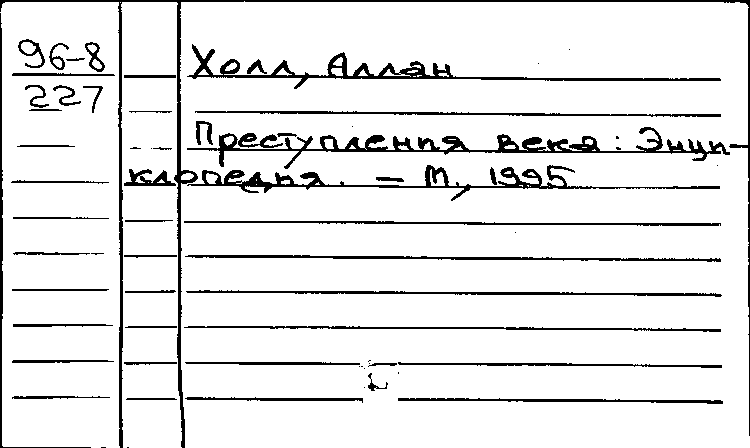 96-8
227
Холл, Аллан
Преступления века: Энци-
клопедия. — М., 1995